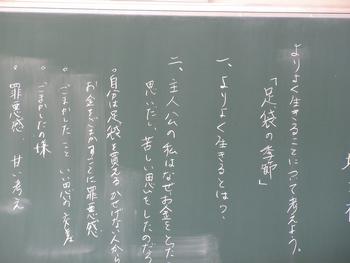 よりよく生きることについて考えよう。
「足袋の季節」
一、よりよく生きるとは？
二、主人公の私はなぜお金をとした
思いたい、苦しい思いをしたのだろ
。自分は足袋を買えるかせげない人から
お金をごまかすことに罪悪感
。ごまかしたこと
。ごまかしたの嫌
。罪悪感、甘い考え